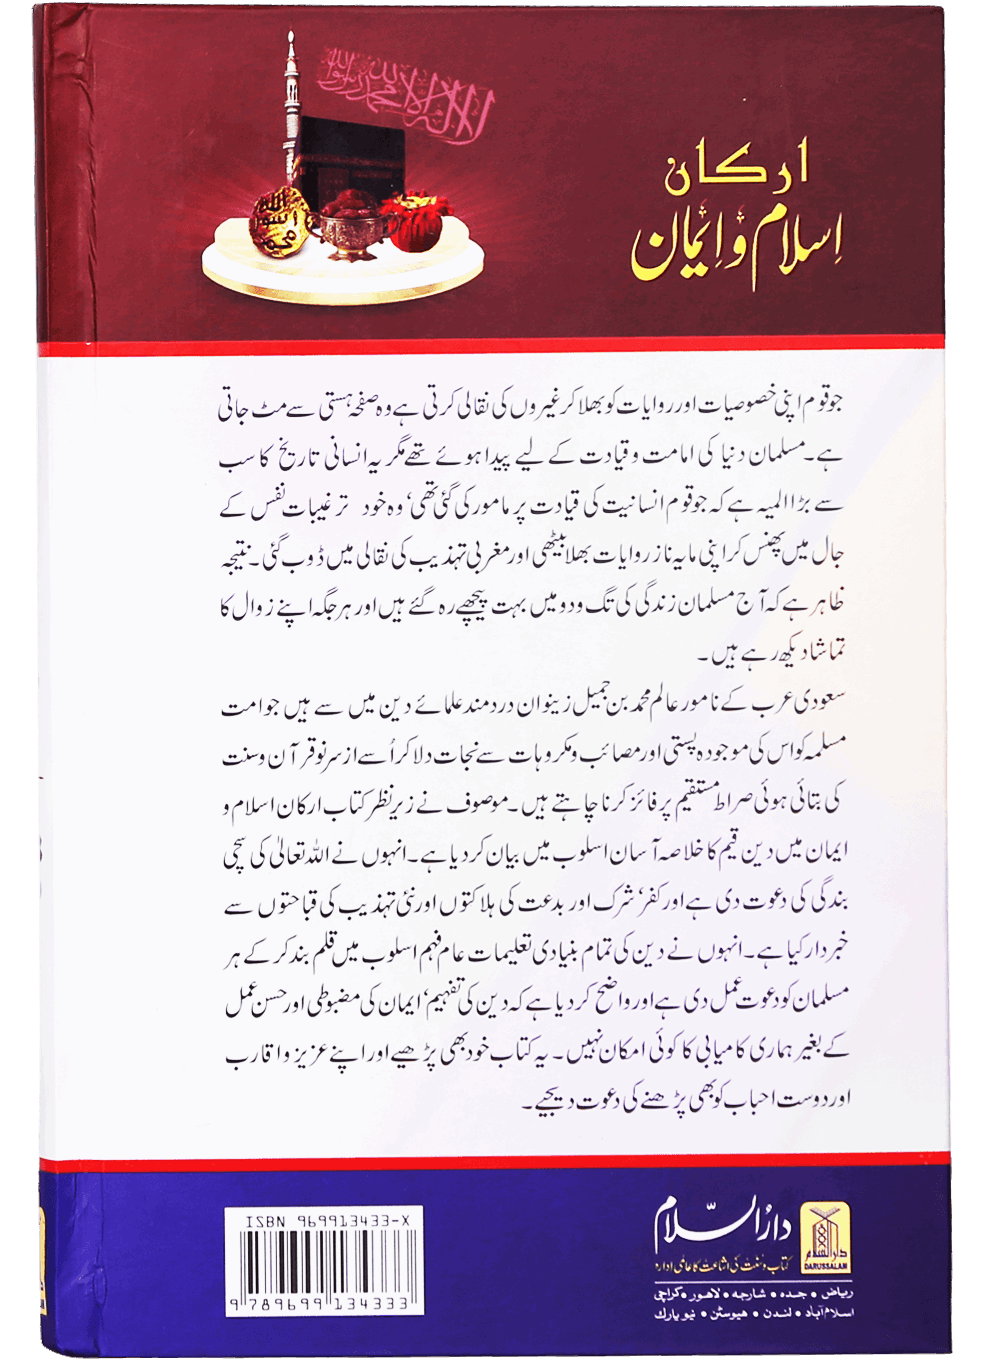 لا اله الا الله محمد رسول الله
الله
رسول
محمد
ارکان
اِسلام و اِیمان
جو قوم اپنی خصوصیات اور روایات کو بھلا کر غیروں کی نقالی کرتی ہے وہ صفحہ ہستی سے مٹ جاتی
ہے۔ مسلمان دنیا کی امامت و قیادت کے لیے پیدا ہوئے تھے مگر یہ انسانی تاریخ کا سب
سے بڑا المیہ ہے کہ جو قوم انسانیت کی قیادت پر مامور کی گئی تھی، وہ خود ترغیبات نفس کے
جال میں پھنس کر اپنی مایہ ناز روایات بھلا بیٹھی اور مغربی تہذیب کی نقالی میں ڈوب گئی۔ نتیجہ
ظاہر ہے کہ آج مسلمان زندگی کی تگ و دو میں بہت پیچھے رہ گئے ہیں اور ہر جگہ اپنے زوال کا
تماشا دیکھ رہے ہیں۔
سعودی عرب کے نامور عالم محمد بن جمیل زینو ان دردمند علمائے دین میں سے ہیں جو امت
مسلمہ کو اس کی موجودہ پستی اور مصائب و مکروہات سے نجات دلا کر اُسے از سر نو قرآن و سنت
کی بتائی ہوئی صراط مستقیم پر فائز کرنا چاہتے ہیں۔ موصوف نے زیر نظر کتاب ارکان اسلام و
ایمان میں دین قیم کا خلاصہ آسان اسلوب میں بیان کر دیا ہے۔ انہوں نے اللہ تعالیٰ کی سچی
بندگی کی دعوت دی ہے اور کفر، شرک اور بدعت کی ہلاکتوں اور نئی تہذیب کی قباحتوں سے
خبردار کیا ہے۔ انہوں نے دین کی تمام بنیادی تعلیمات عام فہم اسلوب میں قلم بند کر کے ہر
مسلمان کو دعوت عمل دی ہے اور واضح کر دیا ہے کہ دین کی تفہیم، ایمان کی مضبوطی اور حسن عمل
کے بغیر ہماری کامیابی کا کوئی امکان نہیں۔ یہ کتاب خود بھی پڑھیے اور اپنے عزیز و اقارب
اور دوست احباب کو بھی پڑھنے کی دعوت دیجیے۔
ISBN 969913433-X
9 789699 134333
دارُالسّلام
کتاب و سُنت کی اشاعت کا عالمی ادارہ
دارالسلام
DARUSSALAM
ریاض • جدہ • شارجہ • لاہور • کراچی
اسلام آباد • لندن • ہیوسٹن • نیو یارک